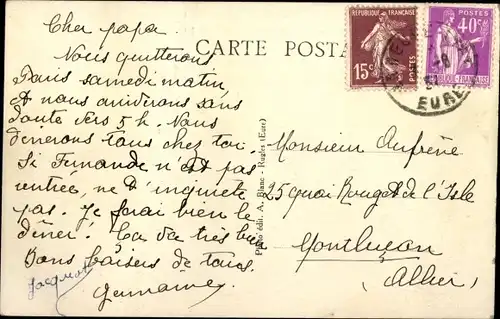 CARTE POSTA
REPUBLIQUE FRANÇAISE
15c
POSTES
POSTES
40c
EURE
Cher papa
Nous quitterons
Paris samedi matin,
et nous arriverons sans
doute vers 5 h. Nous
dînerons tous chez toi.
Si Fernande n'est pas
rentrée, ne t'inquiète
pas. Je ferai bien le
dîner. Ça va très bien
Bons baisers de tous.
Germaine
Photo édit. A. Blanc - Rugles (Eure)
Monsieur Aufrère
25 quai Rouget de l'Isle
Montluçon
(Allier)